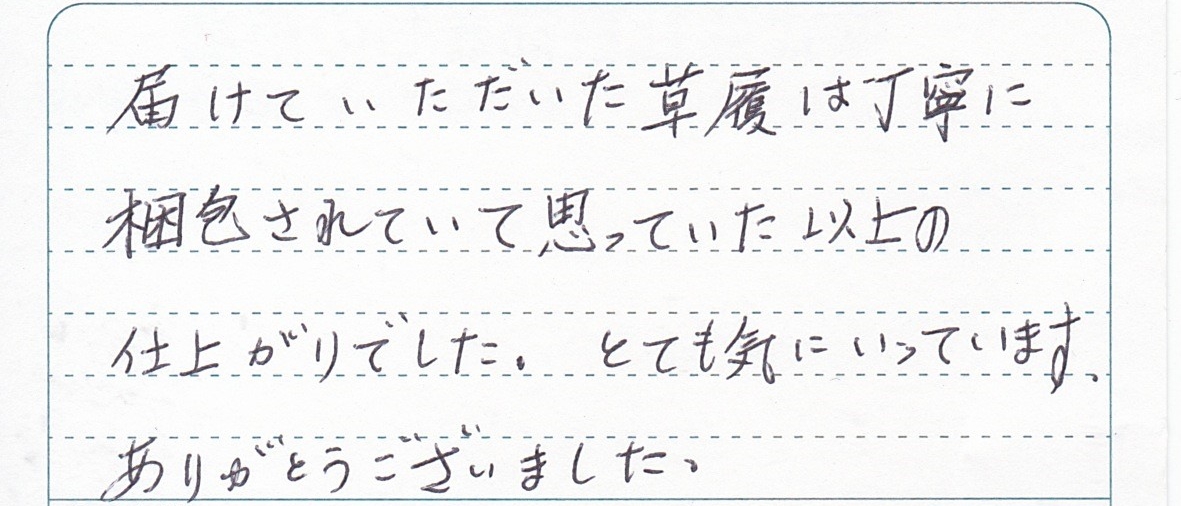 届けていただいた草履は丁寧に
梱包されていて思っていた以上の
仕上がりでした。とても気にいっています。
ありがとうございました。